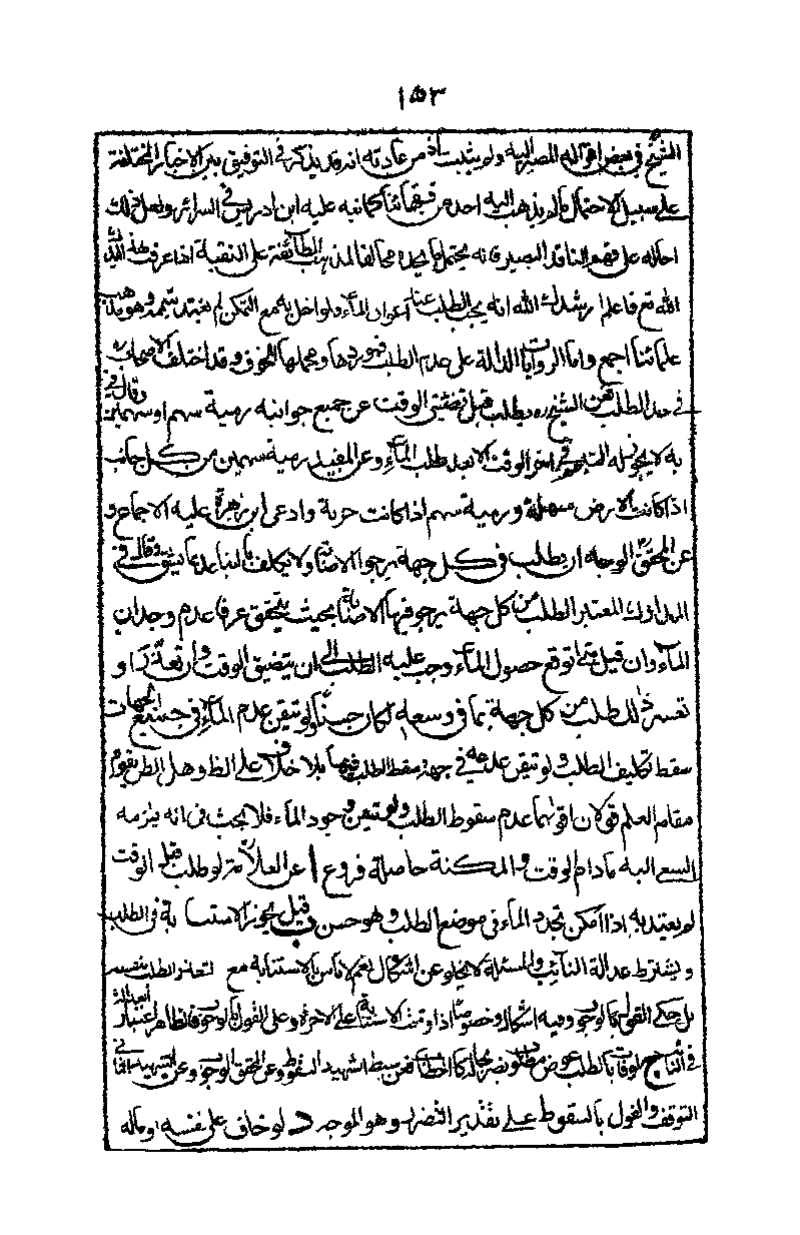 ١٥٣
الشيخ في بعض اقواله المصير اليه ولم يثبت اذ من عادته انه قد يذكر في التوفيق بين الاخبار المختلفة
على سبيل الاحتمال ما لم يذهب اليه احد من فقهائنا كما نبه عليه ابن ادريس في السرائر ولعل ذلك
احاله على فهم الناقد البصير فانه يحتمل مخالفا لمذهب الطائفة على التقية اذا عرفت هذا ايدك
الله تع فاعلم ارشدك الله انه يجب الطلب عنا اعواز الماء ولو اخل به مع التمكن لم يعتد بتيممه وهو مذهب
علمائنا اجمع واما الروايات الدالة على عدم الطلب فمحملها الخوف وقد اختلف الاصحاب ره
في حد الطلب فعن الشيخ ره يطلب قبل تضيق الوقت عن جميع جوانبه رمية سهم او سهمين وقال في
به لا يجوز له التيمم في اخر الوقت الا بعد طلب الماء وعن المفيد رمية سهمين من كل جانب
اذا كانت الارض سهلة ورمية سهم اذا كانت حزنة وادعى ابن زهرة عليه الاجماع و
عن المحقق الوجه ان يطلب في كل جهة يرجو الاصابة ولا يكلف بالتباعد بما يشق وقال في
المدارك المعتبر الطلب من كل جهة يرجو فيها الاصابة بحيث يتحقق عرفا عدم وجدان
الماء وان قيل متى توقع حصول الماء وجب عليه الطلب الى ان يتضيق الوقت وان تعذر او
تعسر ذلك طلب من كل جهة بما في وسعه لكان حسنا ولو تيقن عدم الماء في جميع الجهات
سقط تكليف الطلب ولو تيقن عدمه في جهة سقط الطلب فيها بلا خلاف على الظ وهل الظن يقوم
مقام العلم قولان اقواهما عدم سقوط الطلب ولو تيقن وجود الماء فلا بحث في انه يلزمه
السعي اليه مادام الوقت والمكنة حاصلة فروع ا عن العلامة لو طلب قبل الوقت
لم يعتد به اذا امكن تجدد الماء في موضع الطلب وهو حسن ب قيل يجوز الاستنابة في الطلب
ويشترط عدالة النائب والمسئلة لا يخلو عن اشكال نعم لا باس بالاستنابة مع تعذر الطلب بنفسه
بل حكي القول بالوجوب وفيه اشكال وخصوصا اذا وقعت الاستنابة على الاجرة وعلى القول بالوجوب فالظاهر اعتبار العدالة
في النائب ج لو فات بالطلب غرض مطلوب كالحطاب فعن سبط الشهيد السقوط وعن المحقق الوجوب وعن الشهيد الثاني
التوقف والقول بالسقوط على تقدير التضرر هو الموجه د لو خاف على نفسه او ماله